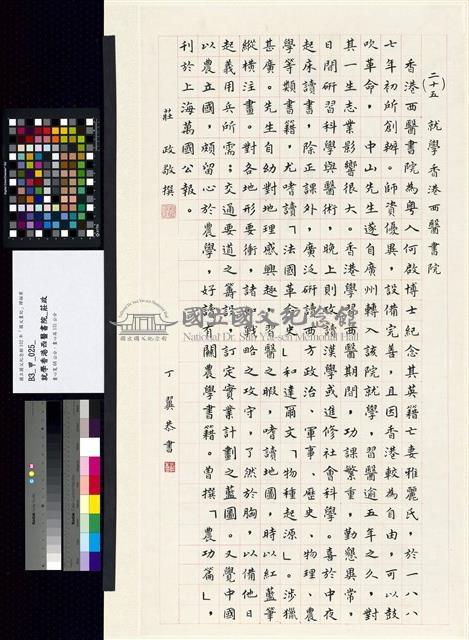 (二十五) 就學香港西醫書院
香港西醫書院為粵人何啟博士紀念其英籍亡妻雅麗氏，於一八八
七年初所創辦。師資優異，設備完善，且因香港較為自由，可以鼓
吹革命，中山先生遂自廣州轉入該院就學，習醫逾五年之久，對
其一生志業影響很大。香港學醫期間，功課繁重，勤懇異常，
日間研習科學與醫術，晚上則攻讀漢學或進修社會科學。喜於中夜
起床讀書，除正課外，廣泛研讀西方政治、軍事、歷史、物理、農
學等類書籍，尤嗜讀「法國革命史」和達爾文「物種起源」。涉獵
甚廣。先生自幼對地理感興趣，習醫之暇，嗜讀地圖，時以紅藍筆
縱橫注畫。對各地形要衝，諸凡戰略之攻守，了然於胸，以備他日
起義用兵所需；交通要道之籌設，訂定實業計劃之藍圖。又覺中國
以農立國，頗留心於農學，好讀有關農學書籍。曾撰「農功篇」，
刊於上海萬國公報。
莊 政敬撰
丁 翼恭書
國立國父紀念館
National Dr. Sun Yat-sen Memorial Hall
B3_甲_025_
就學香港西醫書院_莊政